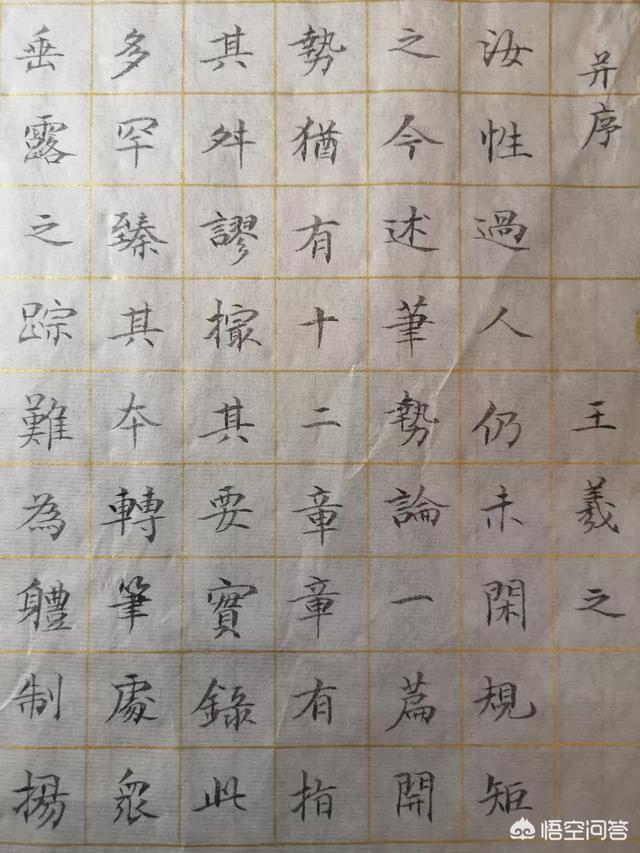 并序 王羲之
汝性過人仍未閑規矩
之今述筆勢論一篇開
勢猶有十二章章有指
其舛謬撮其要實錄此
多罕臻其夲轉筆處衆
垂露之踪難為軆制揚
悟空问答